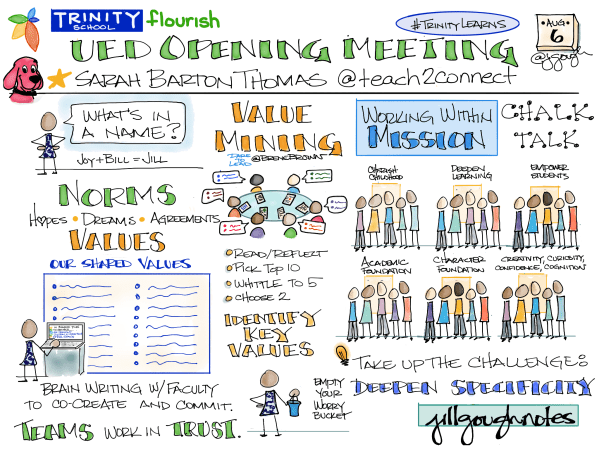 TRINITY
SCHOOL
flourish
#TRINITYLEARNS
AUG
6
@jgough
UED OPENING MEETING
SARAH BARTON THOMAS @teach2connect
WHAT'S IN
A NAME?
JOY + BILL = JILL
NORMS
HOPES • DREAMS • AGREEMENTS
VALUES
OUR SHARED VALUES
BRAIN WRITING W/FACULTY
TO CO-CREATE AND COMMIT.
TEAMS WORK IN TRUST.
VALUE
MINING
DARE TO LEAD
@BRENEBROWN
READ/REFLECT
PICK TOP 10
WHITTLE TO 5
CHOOSE 2
IDENTIFY
KEY
VALUES
EMPTY
YOUR
WORRY
BUCKET
WORKING WITHIN
MISSION
CHALK
TALK
CHERISH
CHILDHOOD
DEEPEN
LEARNING
EMPOWER
STUDENTS
ACADEMIC
FOUNDATION
CHARACTER
FOUNDATION
CREATIVITY, CURIOSITY,
CONFIDENCE, COGNITION
TAKE UP THE CHALLENGE:
DEEPEN SPECIFICITY
jillgoughnotes